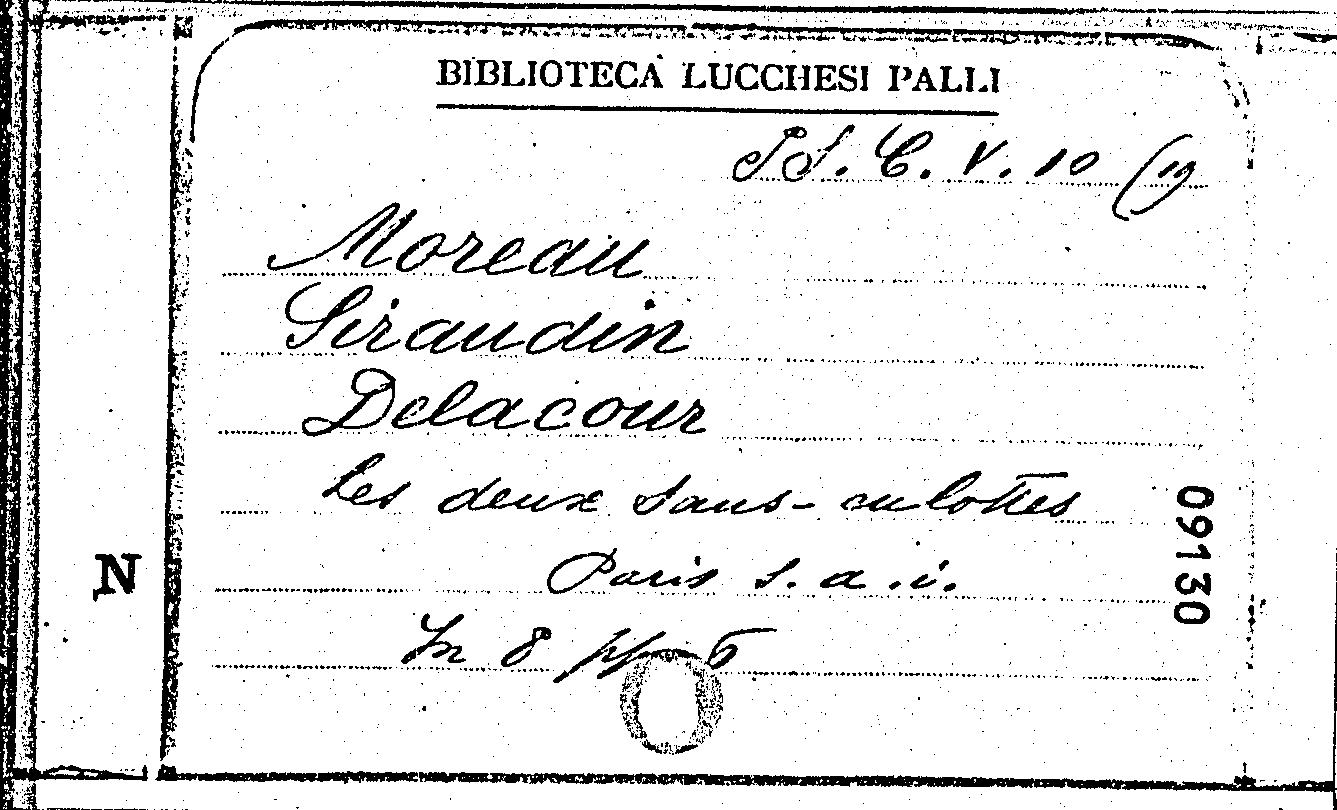 BIBLIOTECA LUCCHESI PALLI
C. V. 10 (19
Moreau
Siraudin
Delacour
Les deux sans-culottes
Paris s. a. i.
In 8 pp 6
N
09130